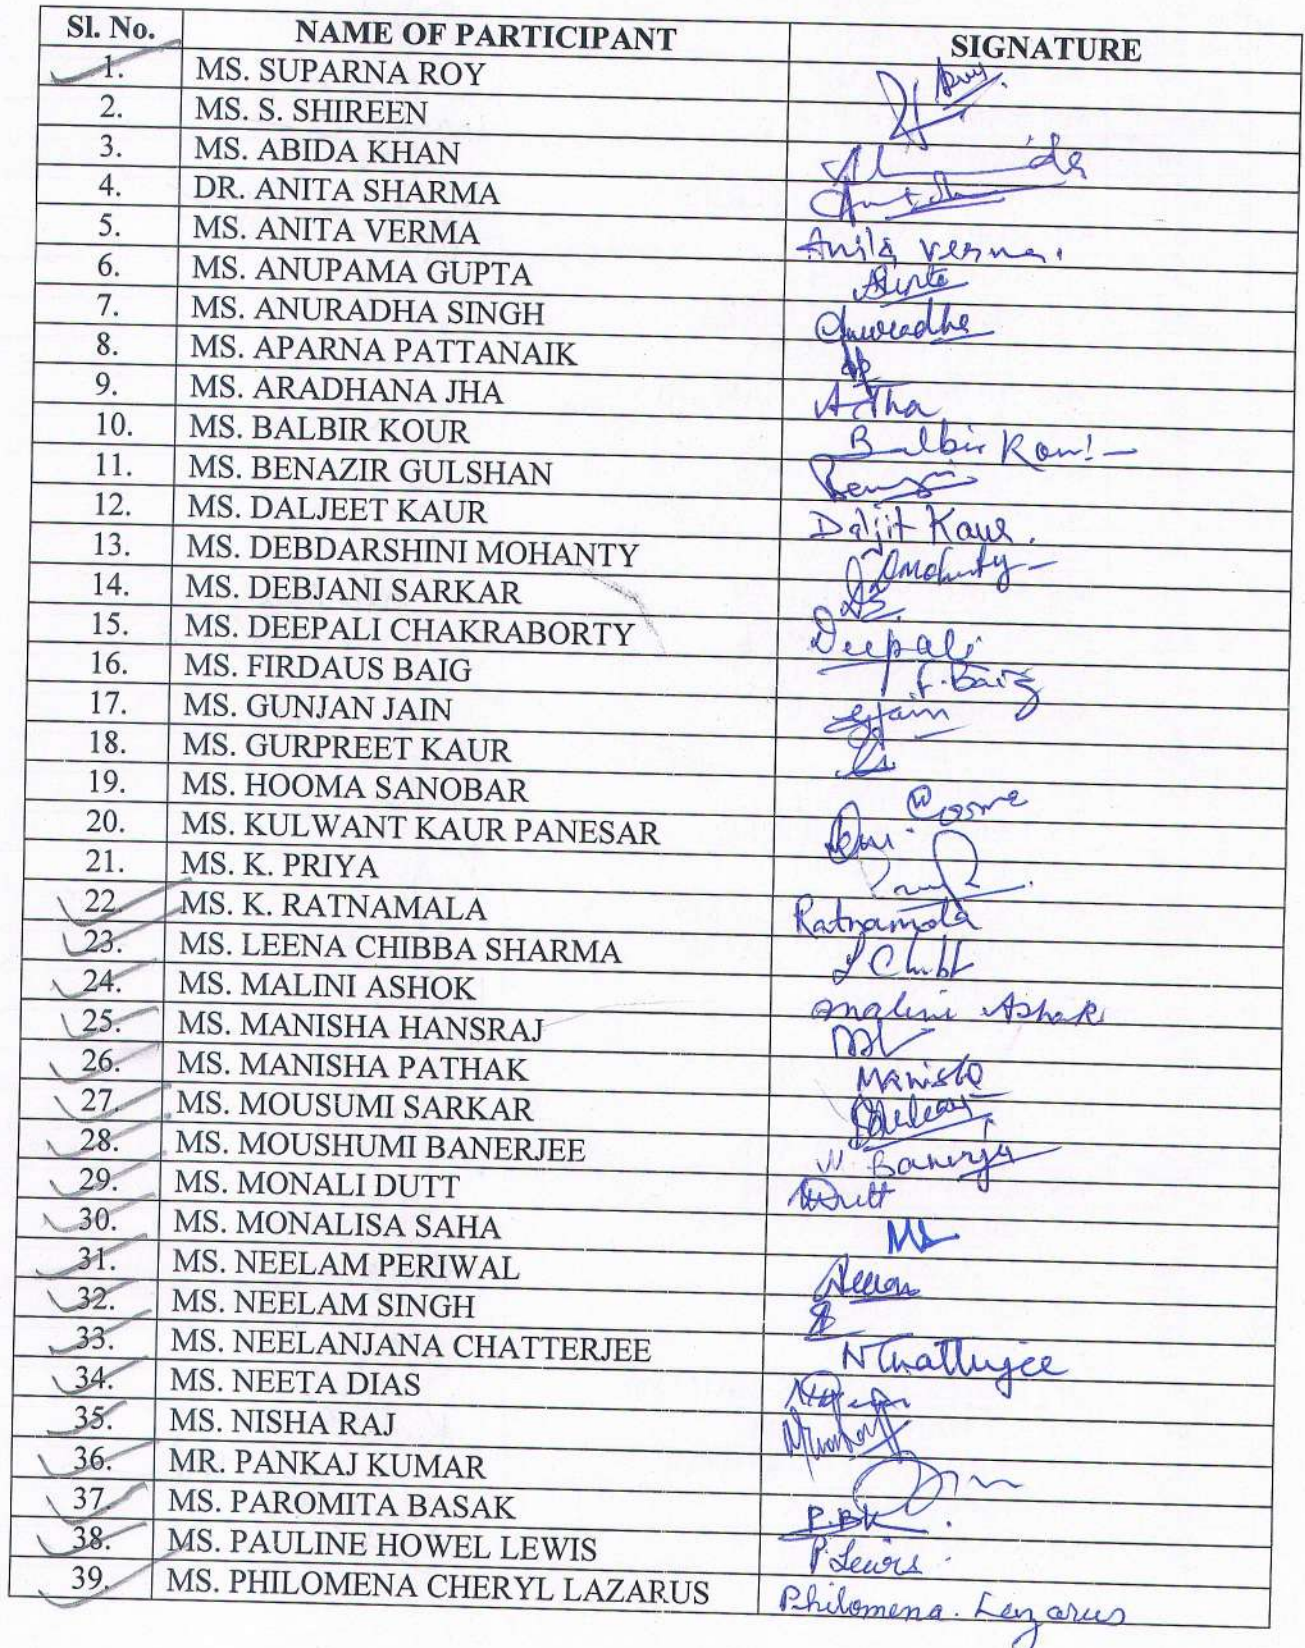 Sl. No. NAME OF PARTICIPANT SIGNATURE
1. MS. SUPARNA ROY Roy
2. MS. S. SHIREEN
3. MS. ABIDA KHAN
4. DR. ANITA SHARMA
5. MS. ANITA VERMA Anita Verma.
6. MS. ANUPAMA GUPTA
7. MS. ANURADHA SINGH Anuradha
8. MS. APARNA PATTANAIK
9. MS. ARADHANA JHA A Jha
10. MS. BALBIR KOUR Balbir Kour
11. MS. BENAZIR GULSHAN
12. MS. DALJEET KAUR Daljit Kaur.
13. MS. DEBDARSHINI MOHANTY DMohanty
14. MS. DEBJANI SARKAR
15. MS. DEEPALI CHAKRABORTY Deepali
16. MS. FIRDAUS BAIG F. Baig
17. MS. GUNJAN JAIN GJain
18. MS. GURPREET KAUR
19. MS. HOOMA SANOBAR
20. MS. KULWANT KAUR PANESAR
21. MS. K. PRIYA
22. MS. K. RATNAMALA Ratnamala
23. MS. LEENA CHIBBA SHARMA
24. MS. MALINI ASHOK Malini Ashok
25. MS. MANISHA HANSRAJ
26. MS. MANISHA PATHAK Manisha
27. MS. MOUSUMI SARKAR
28. MS. MOUSHUMI BANERJEE M. Banerjee
29. MS. MONALI DUTT MDutt
30. MS. MONALISA SAHA
31. MS. NEELAM PERIWAL
32. MS. NEELAM SINGH
33. MS. NEELANJANA CHATTERJEE NChatterjee
34. MS. NEETA DIAS
35. MS. NISHA RAJ
36. MR. PANKAJ KUMAR
37. MS. PAROMITA BASAK
38. MS. PAULINE HOWEL LEWIS P. Lewis
39. MS. PHILOMENA CHERYL LAZARUS Philomena. Lazarus